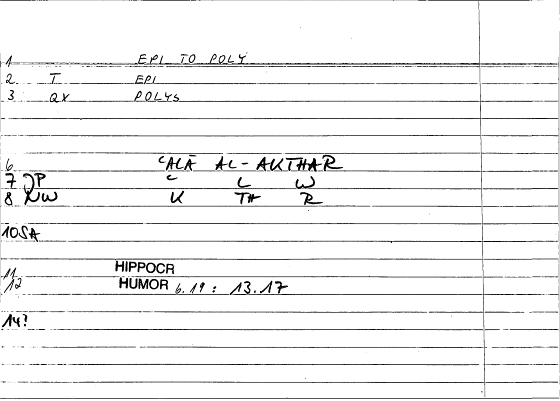 1 EPI TO POLY
2 T EPI
3 QX POLYS
6 ʿALĀ AL-AKTHAR
7 JP ʿ L W
8 NW K TH R
10SA
11 HIPPOCR
12 HUMOR 6.19 : 13.17
14?